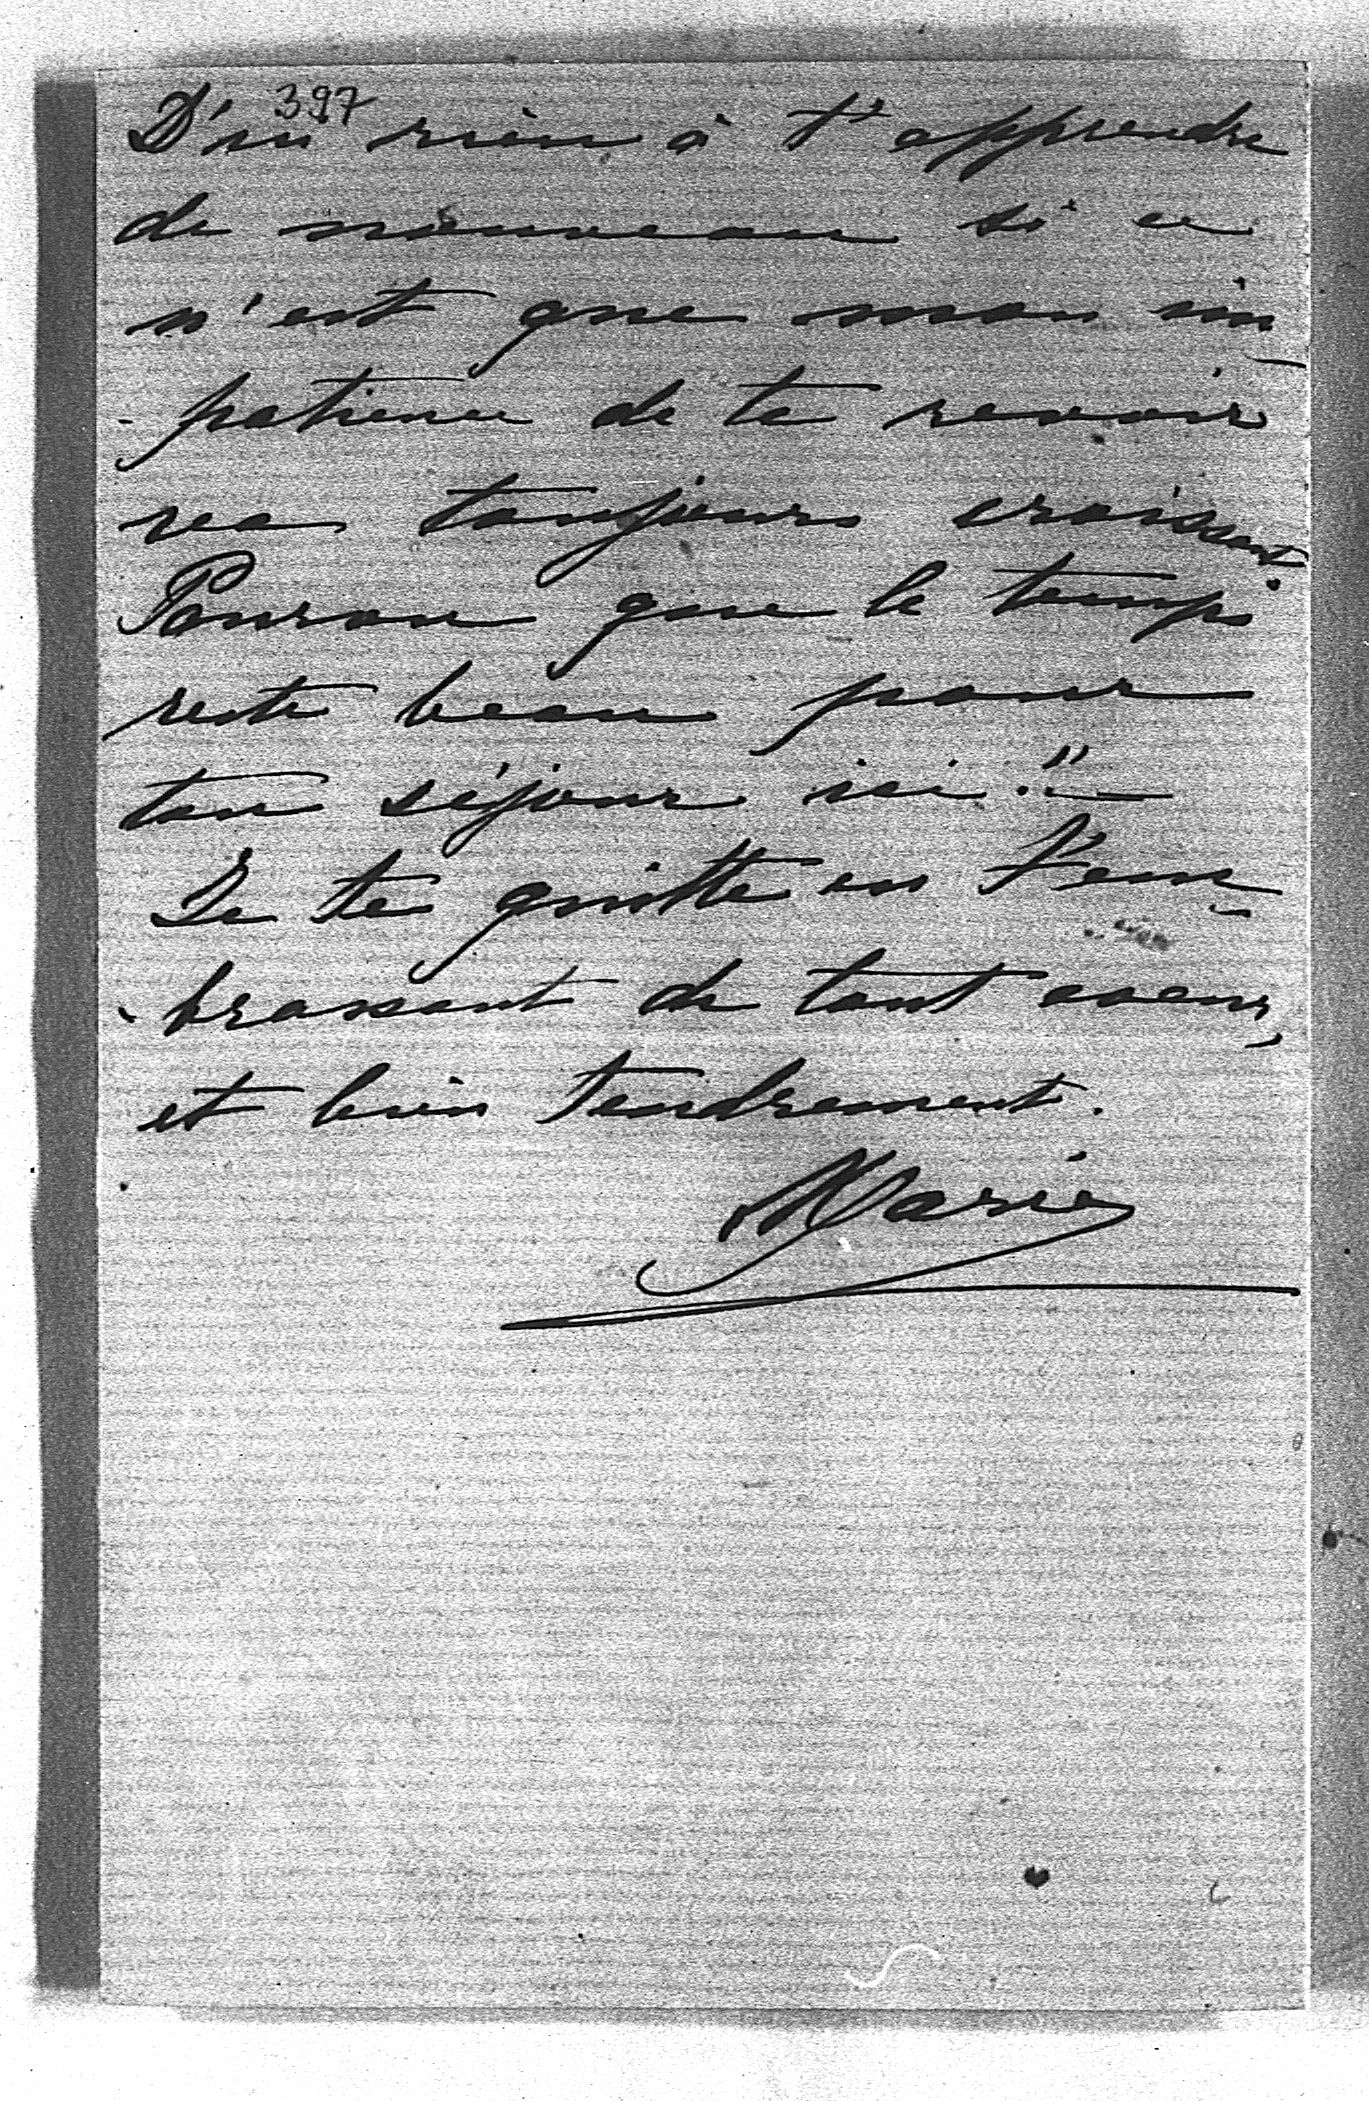 397
D'ici rien à t'apprendre
de nouveau si ce
n'est que mon im
- patience de te revoir
va toujours croissant.
Pourvu que le temps
reste beau pour
ton séjour ici !!
Je te quitte en t'em-
- brassant de tout coeur,
et bien tendrement.
Marie